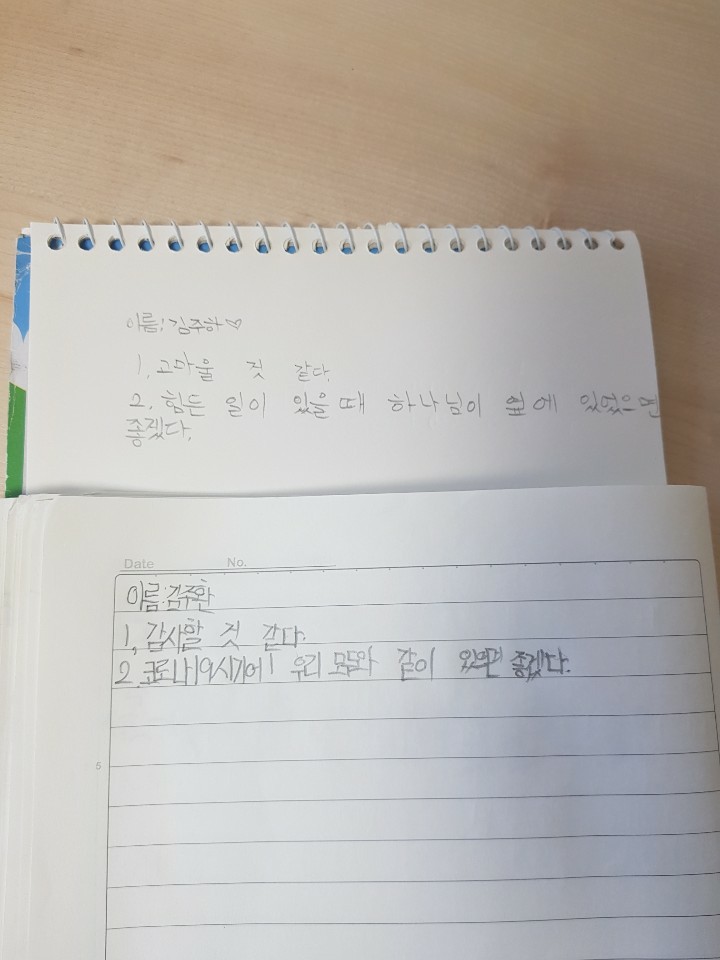 이름: 김주하♡
1. 고마울 것 같다.
2. 힘든 일이 있을 때 하나님이 옆에 있었으면
좋겠다.
Date No.
이름:김주환
1, 감사할 것 같다.
2. 코로나19시기에 우리 모두와 같이 있으면 좋겠다.
5